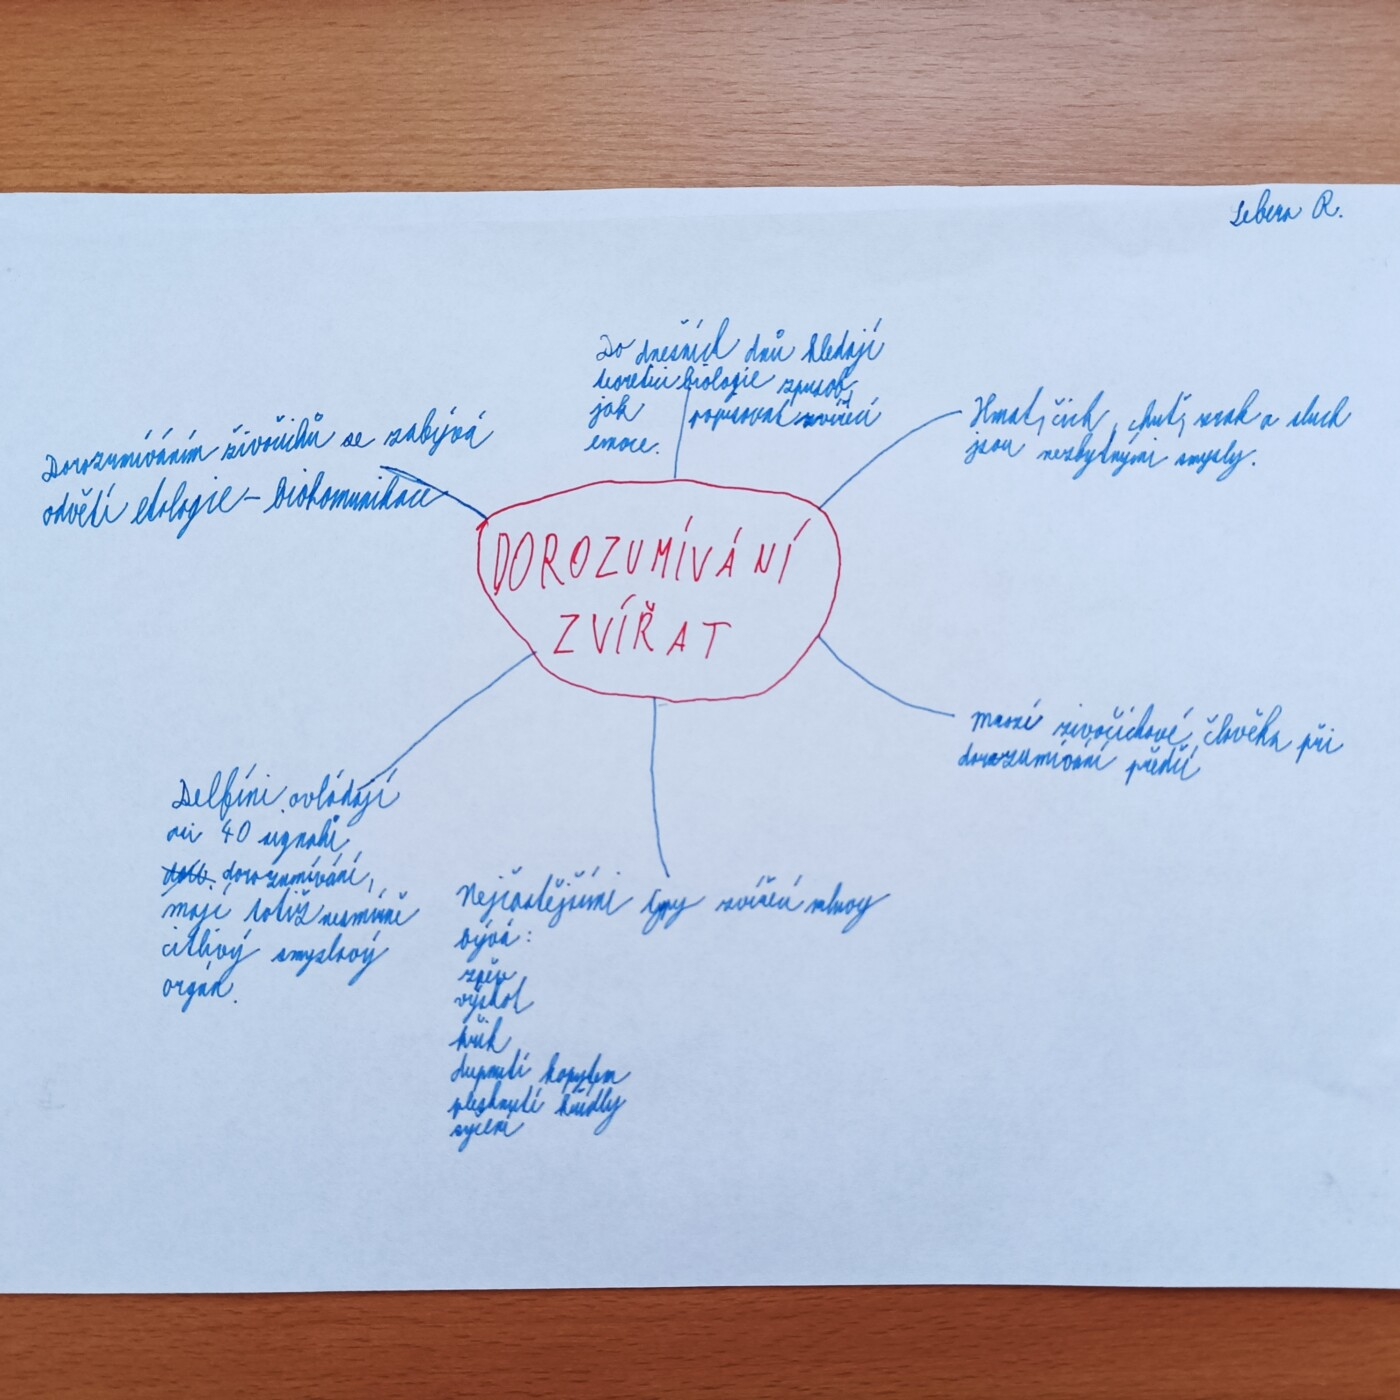 Lebera R.
Do dnešních dnů hledají
teoretici biologie způsob,
jak popisovat zvířecí
emoce.
Hmat, čich, chuť, zrak a sluch
jsou nezbytnými smysly.
Dorozumíváním živočichů se zabývá
odvětí etologie - biokomunikace
DOROZUMÍVÁNÍ
ZVÍŘAT
mnozí živočichové člověka při
dorozumívání předčí
Delfíni ovládají
asi 40 signálů
dorozumívání,
mají totiž nesmírně
citlivý smyslový
orgán.
Nejčastějšími typy zvířecí mluvy
bývá:
zpěv
výskot
křik
dupnutí kopytem
plesknutí křídly
syčení